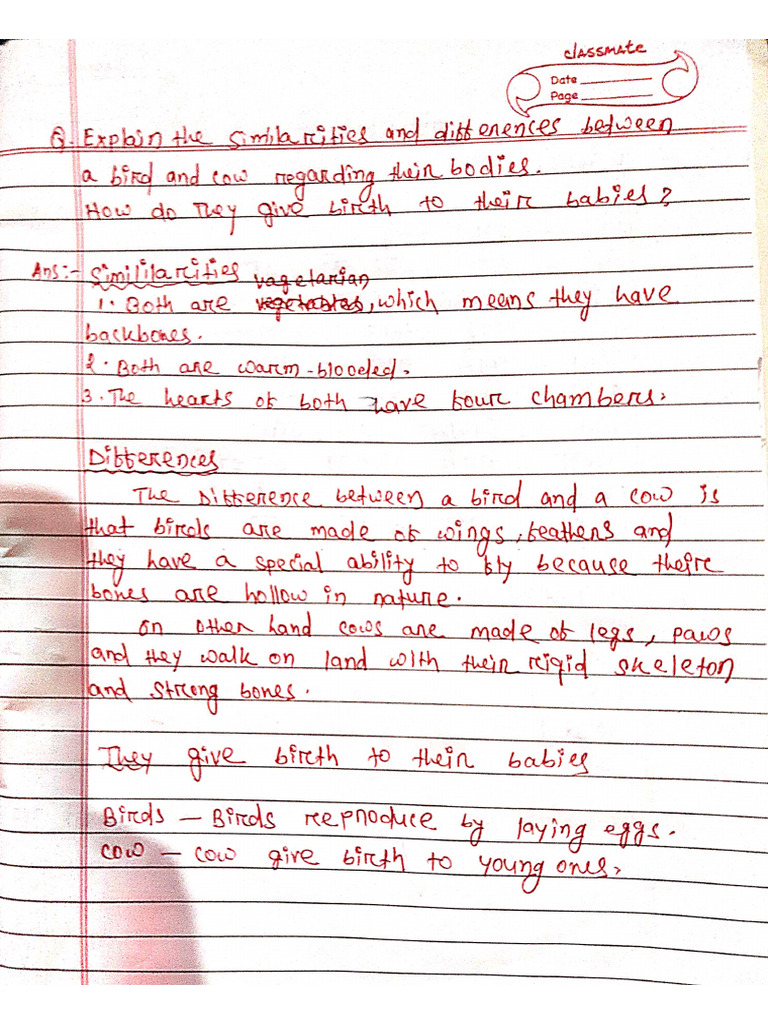 classmate
Date
Page
Q. Explain the similarities and differences between
a bird and cow regarding their bodies.
How do They give birth to their babies?
Ans:- Simililarities vagetarian
1. Both are vegetables, which means they have
backbones.
2. Both are warm-blooded.
3. The hearts of both have four chambers.
Differences
The Difference between a bird and a cow is
that birds are made of wings, feathers and
they have a special ability to fly because their
bones are hollow in nature.
On other hand cows are made of legs, paws
and they walk on land with their rigid skeleton
and strong bones.
They give birth to their babies
Birds – Birds reproduce by laying eggs.
cow – cow give birth to young ones.